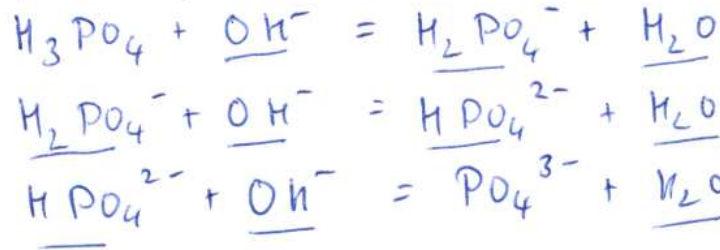 H₃PO₄ + OH⁻ = H₂PO₄⁻ + H₂O
H₂PO₄⁻ + OH⁻ = HPO₄²⁻ + H₂O
HPO₄²⁻ + OH⁻ = PO₄³⁻ + H₂O